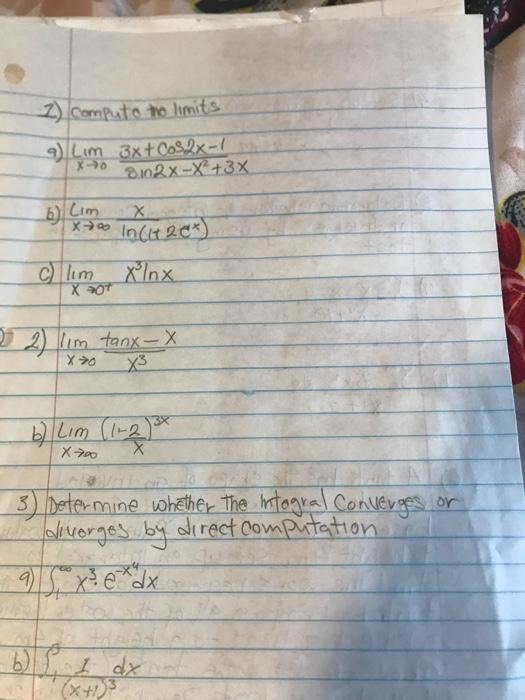 1) compute the limits
a) Lim x→0 3x+cos2x-1 / sin2x-x²+3x
b) Lim x→∞ x / ln(1+2eˣ)
c) lim x→0⁺ x³lnx
2) lim x→0 tanx-x / x³
b) Lim x→∞ (1-2/x)³ˣ
3) Determine whether the integral converges or
diverges by direct computation
a) ∫₁^∞ x³·e^-x⁴dx
b) ∫ 1 / (x+1)³ dx